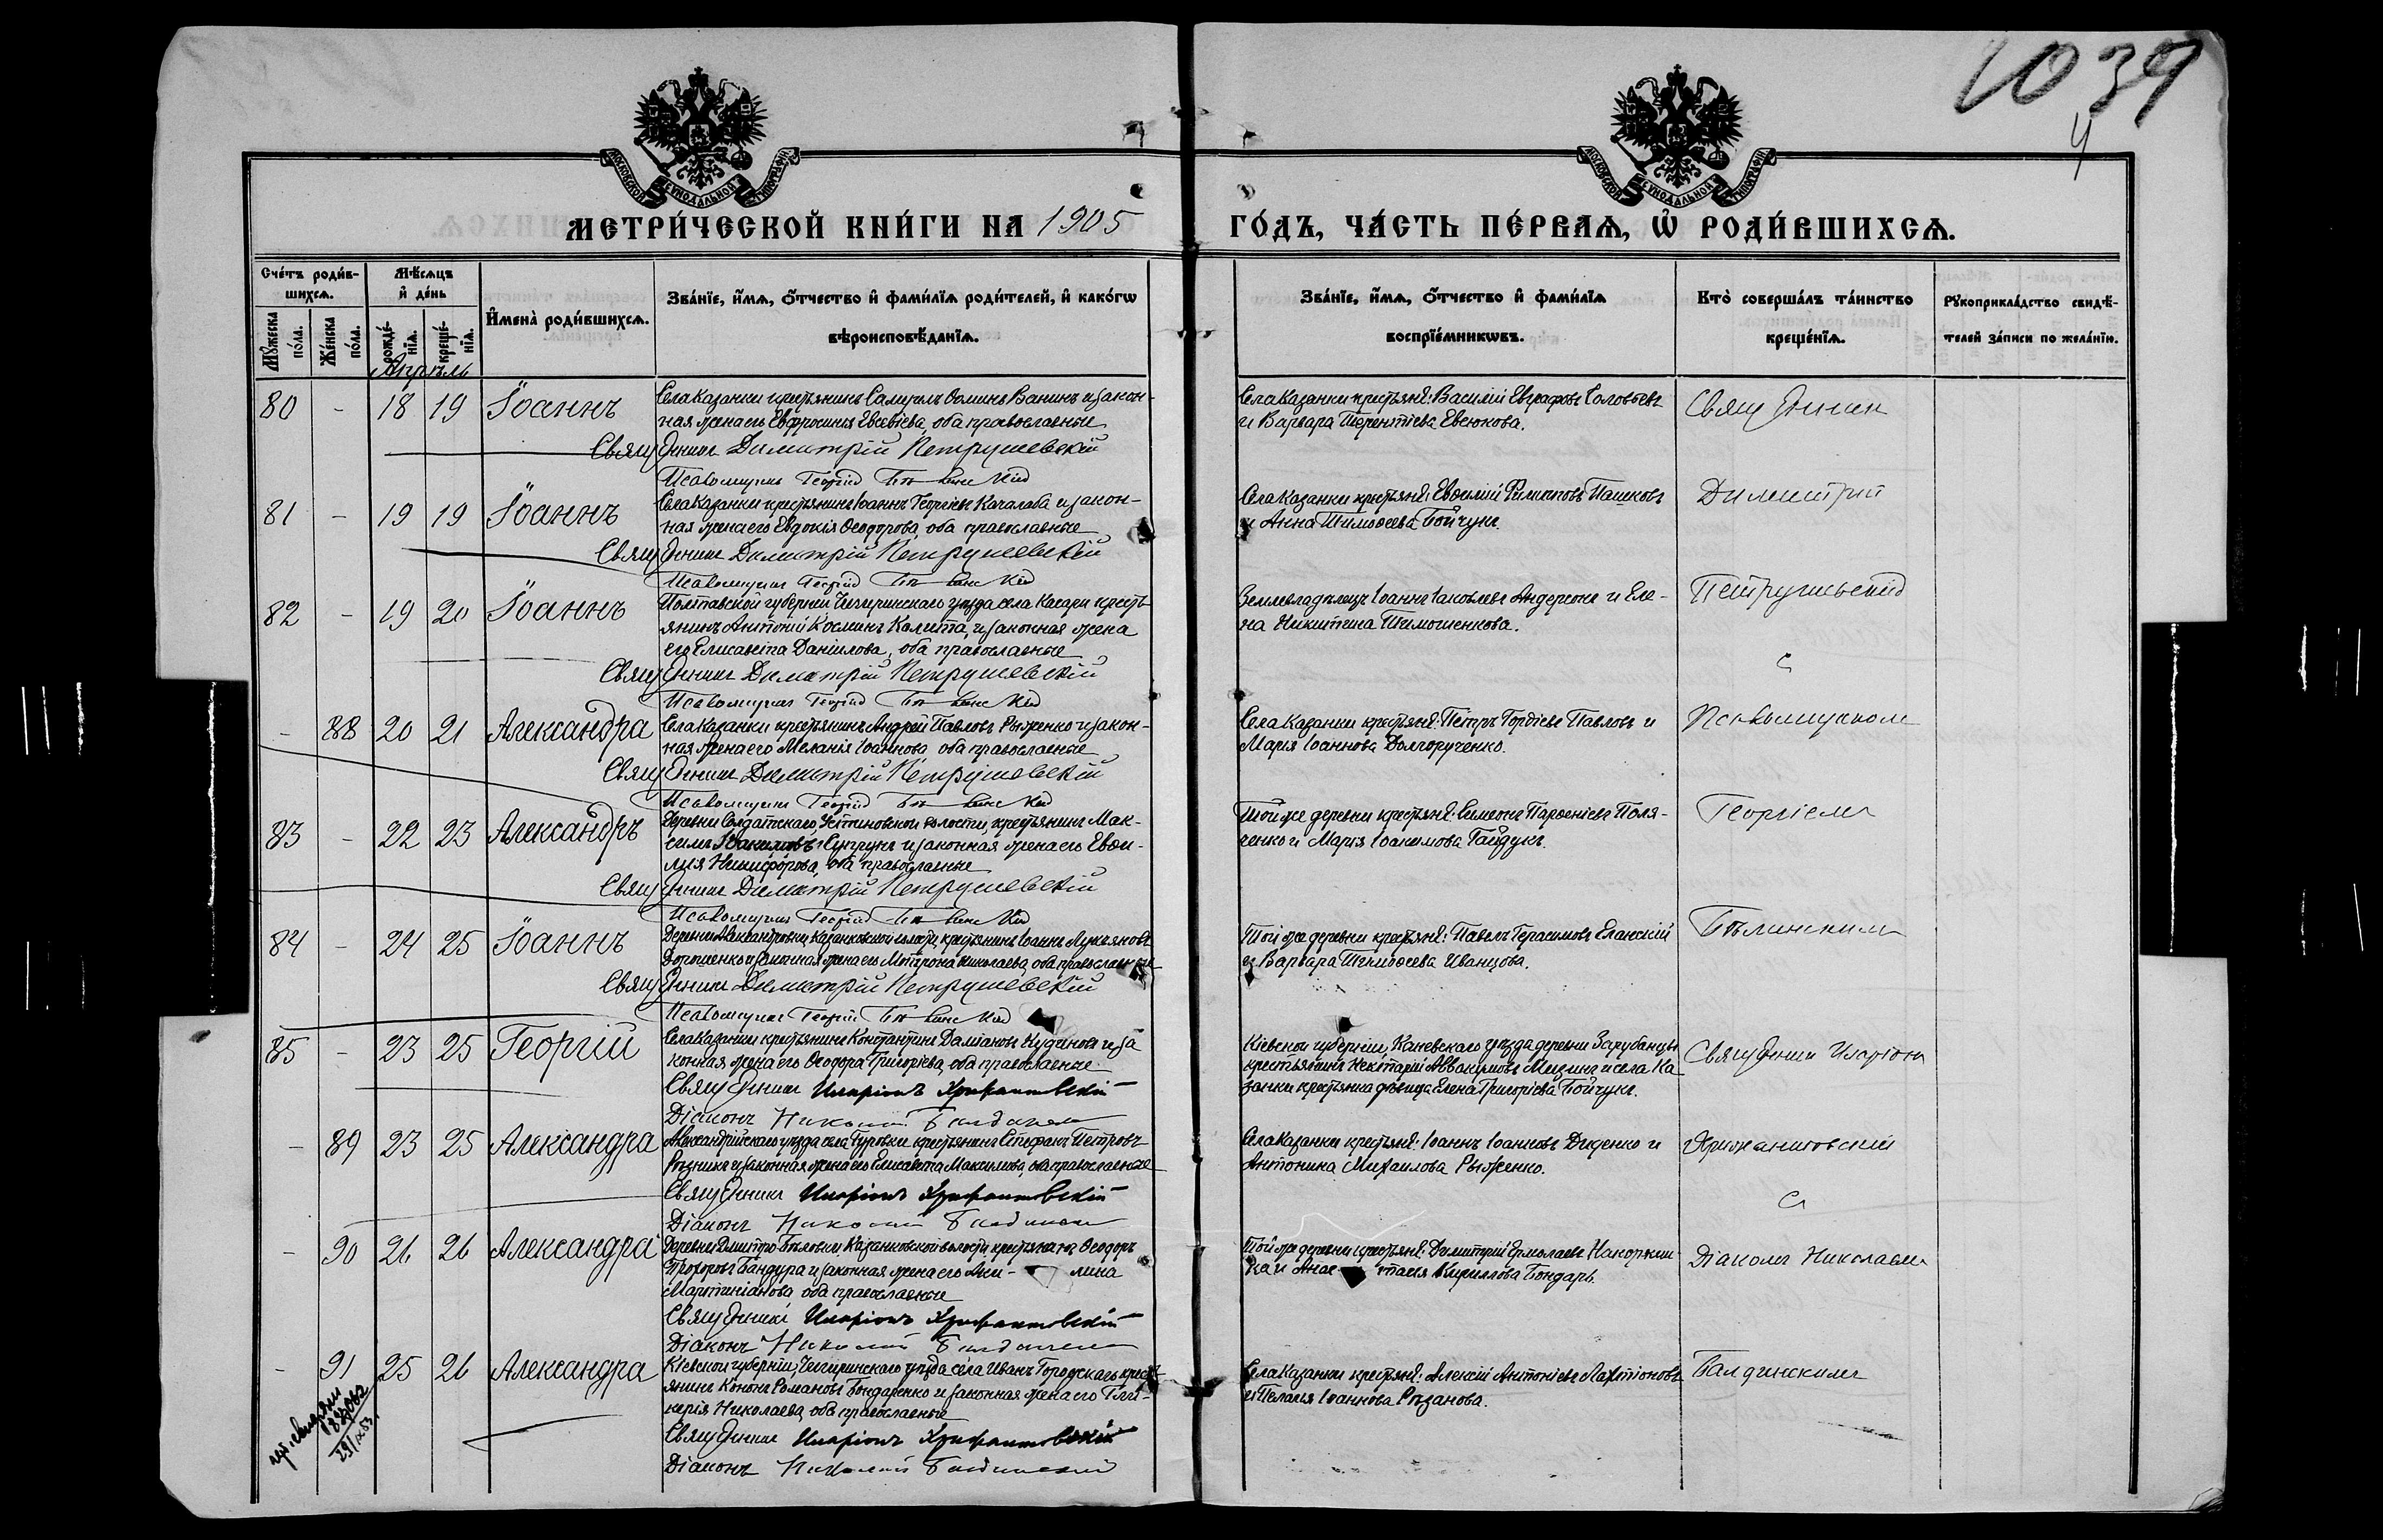 1039
4
МОСКОВСКОЙ СѴНОДАЛЬНОЙ ТИПОГРАФІИ
МОСКОВСКОЙ СѴНОДАЛЬНОЙ ТИПОГРАФІИ
МЕТРИ́ЧЕСКОЙ КНИ́ГИ НА 1905 ГО́ДЪ, ЧА́СТЬ ПЕ́РВАѦ, Ѡ҆ РОДИ́ВШИХСѦ.
Сче́тъ роди́вшихсѧ.
Мꙋ́жеска по́ла.
Же́нска по́ла.
Мѣ́сѧцъ и҆ де́нь
рожде́нїѧ.
креще́нїѧ.
И҆мена̀ роди́вшихсѧ.
Зва́нїе, и҆́мѧ, ѻ҆́тчество и҆ фами́лїѧ роди́телей, и҆ како́гѡ
вѣроисповѣ́данїѧ.
Зва́нїе, и҆́мѧ, ѻ҆́тчество и҆ фами́лїѧ
воспрїе́мникѡвъ.
Кто̀ соверша́лъ та́инство
креще́нїѧ.
Рꙋкоприкла́дство свидѣ́-
телей за́писи по жела́нїю.
Апрѣль
80 - 18 19 Іоаннъ
Села Казанки крестьянинъ Самуилъ Ѳоминъ Ванинъ и закон-
ная жена его Евфросинія Евсевіева, оба православные
Священникъ Димитрій Петрушевскій
Псаломщикъ Георгій
Села Казанки крестьяне: Василій Евграфовъ Соловьевъ
и Варвара Терентіева Евсюкова.
Священник
81 - 19 19 Іоаннъ
Села Казанки крестьянинъ Іоаннъ Георгіевъ Качалаба и закон-
ная жена его Евдокія Ѳеодорова, оба православные
Священникъ Димитрій Петрушевскій
Псаломщикъ Георгій
Села Казанки крестьяне: Евѳимій Филипповъ Пашковъ
и Анна Тимоѳеева Бойчукъ.
Димитрій
82 - 19 20 Іоаннъ
Полтавской губерніи Чигиринскаго уѣзда села Касари кресть-
янинъ Антоній Косминъ Калита, и законная жена
его Елисавета Даніилова, оба православные
Священникъ Димитрій Петрушевскій
Псаломщикъ Георгій
Землевладѣлецъ Іоаннъ Іаковлевъ Андерсонъ и Еле-
на Никитина Тимошенкова.
Петрушевскій
с
- 88 20 21 Александра
Села Казанки крестьянинъ Андрей Павловъ Рыженко и закон-
ная жена его Меланія Іоаннова, оба православные
Священникъ Димитрій Петрушевскій
Псаломщикъ Георгій
Села Казанки крестьяне: Петръ Гордіевъ Павловъ и
Марія Іоаннова Долгорученко.
Псаломщиком
83 - 22 23 Александръ
Деревни Солдатскаго, Устиновской волости, крестьянинъ Мак-
симъ Іоакимовъ Супрунъ и законная жена его Евѳи-
мія Никифорова, оба православные
Священникъ Димитрій Петрушевскій
Псаломщикъ Георгій
Той же деревни крестьяне: Симеонъ Парѳеніевъ Поля-
ченко и Марія Іоакимова Гайдукъ.
Георгіемъ
84 - 24 25 Іоаннъ
Деревни Александровки, Казанковской волости, крестьянинъ Іоаннъ Лукьяновъ
Дорошенко и законная жена его Матрона Николаева, оба православные
Священникъ Димитрій Петрушевскій
Псаломщикъ Георгій
Той же деревни крестьяне: Павелъ Герасимовъ Еланскій
и Варвара Тимоѳеева Иванцова.
Бѣлинскимъ
85 - 23 25 Георгій
Села Казанки крестьянинъ Константинъ Даміановъ Кудиновъ и за
конная жена его Ѳеодора Григорьева, оба православные
Священникъ Иларіонъ Хрисанѳовскій
Діаконъ Николай Балдинскій
Кіевской губерніи, Каневскаго уѣзда деревни Зарубанцы
крестьянинъ Нектарій Аввакумовъ Мизинъ и села Ка
занки крестьянка дѣвица Елена Григоріева Бойчукъ.
Священник Иларіон
- 89 23 25 Александра
Александрійскаго уѣзда села Гуровки крестьянинъ Стефанъ Петровъ
Рѣзникъ и законная жена его Елисавета Максимова, оба православные
Священникъ Иларіонъ Хрисанѳовскій
Діаконъ Николай Балдинскій
Села Казанки крестьяне: Іоаннъ Іоанновъ Диденко и
Антонина Михаилова Рыженко.
Хрисанѳовскій
с
- 90 26 26 Александра
Деревни Дмитро-Бѣловки Казанковской волости крестьянинъ Ѳеодоръ
Прохоровъ Бандура и законная жена его Аки- лина
Мартиніанова, оба православные
Священникъ Иларіонъ Хрисанѳовскій
Діаконъ Николай Балдинскій
Той же деревни крестьяне: Димитрій Ермолаевъ
ка и Анас тасія Кириллова Бондарь.
Діакономъ Николаемъ
- 91 25 26 Александра
Кіевской губерніи, Чигиринскаго уѣзда села Иванъ-Городскаго кресть
янинъ Кононъ Романовъ Бондаренко и законная жена его Гли-
керія Николаева, оба православные
Священникъ Иларіонъ Хрисанѳовскій
Діаконъ Николай Балдинскій
Села Казанки крестьяне: Алексій Антоніевъ Лахтіоновъ
и Пелагія Іоаннова Рѣзанова.
Балдинскимъ